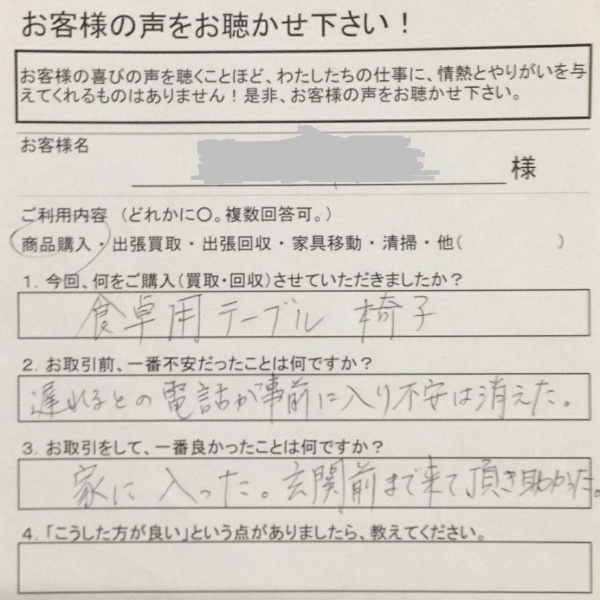 お客様の声をお聴かせ下さい！
お客様の喜びの声を聴くことほど、わたしたちの仕事に、情熱とやりがいを与
えてくれるものはありません！是非、お客様の声をお聴かせ下さい。
お客様名
様
ご利用内容　（どれかに〇。複数回答可。）
商品購入・出張買取・出張回収・家具移動・清掃・他(　　　　　　)
1．今回、何をご購入（買取・回収）させていただきましたか？
食卓用テーブル　椅子
2．お取引前、一番不安だったことは何ですか？
遅れるとの電話が事前に入り不安は消えた。
3．お取引をして、一番良かったことは何ですか？
家に入った。玄関前まで来て頂き助かった。
4．「こうした方が良い」という点がありましたら、教えてください。